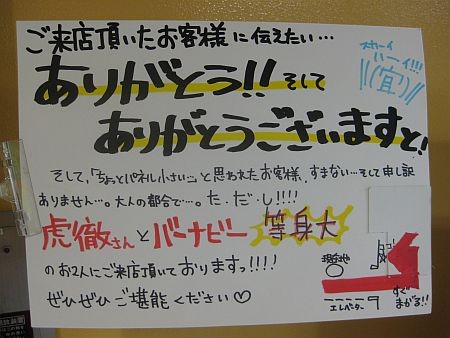 ご来店頂いたお客様に伝えたい…
ありがとう!! そして
ありがとうございますと!
スカーイ
いーイ!!!
\\(宜)//
そして、「ちょっとパネル小さい…」と思われたお客様、すまない…そして申し訳
ありません…。大人の都合で…。た・だ・し!!!!
虎徹さんとバーナビー等身大
のお2人にご来店頂いておりますっ!!!!
ぜひぜひご堪能ください♡
現在地
エレベーター
すぐ
まがる!!